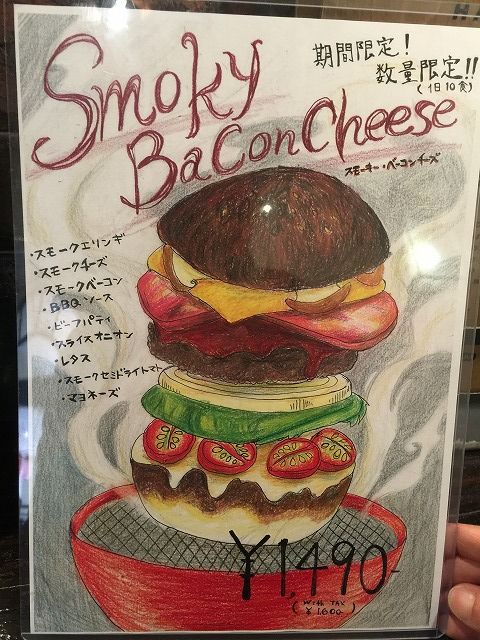 Smoky
期間限定!
数量限定!!
(1日10食)
Bacon Cheese
スモーキー・ベーコンチーズ
・スモークエリンギ
・スモークチーズ
・スモークベーコン
・BBQソース
・ビーフパティ
・スライスオニオン
・レタス
・スモークセミドライトマト
・マヨネーズ
¥1,490-
(with TAX
¥1,600-)